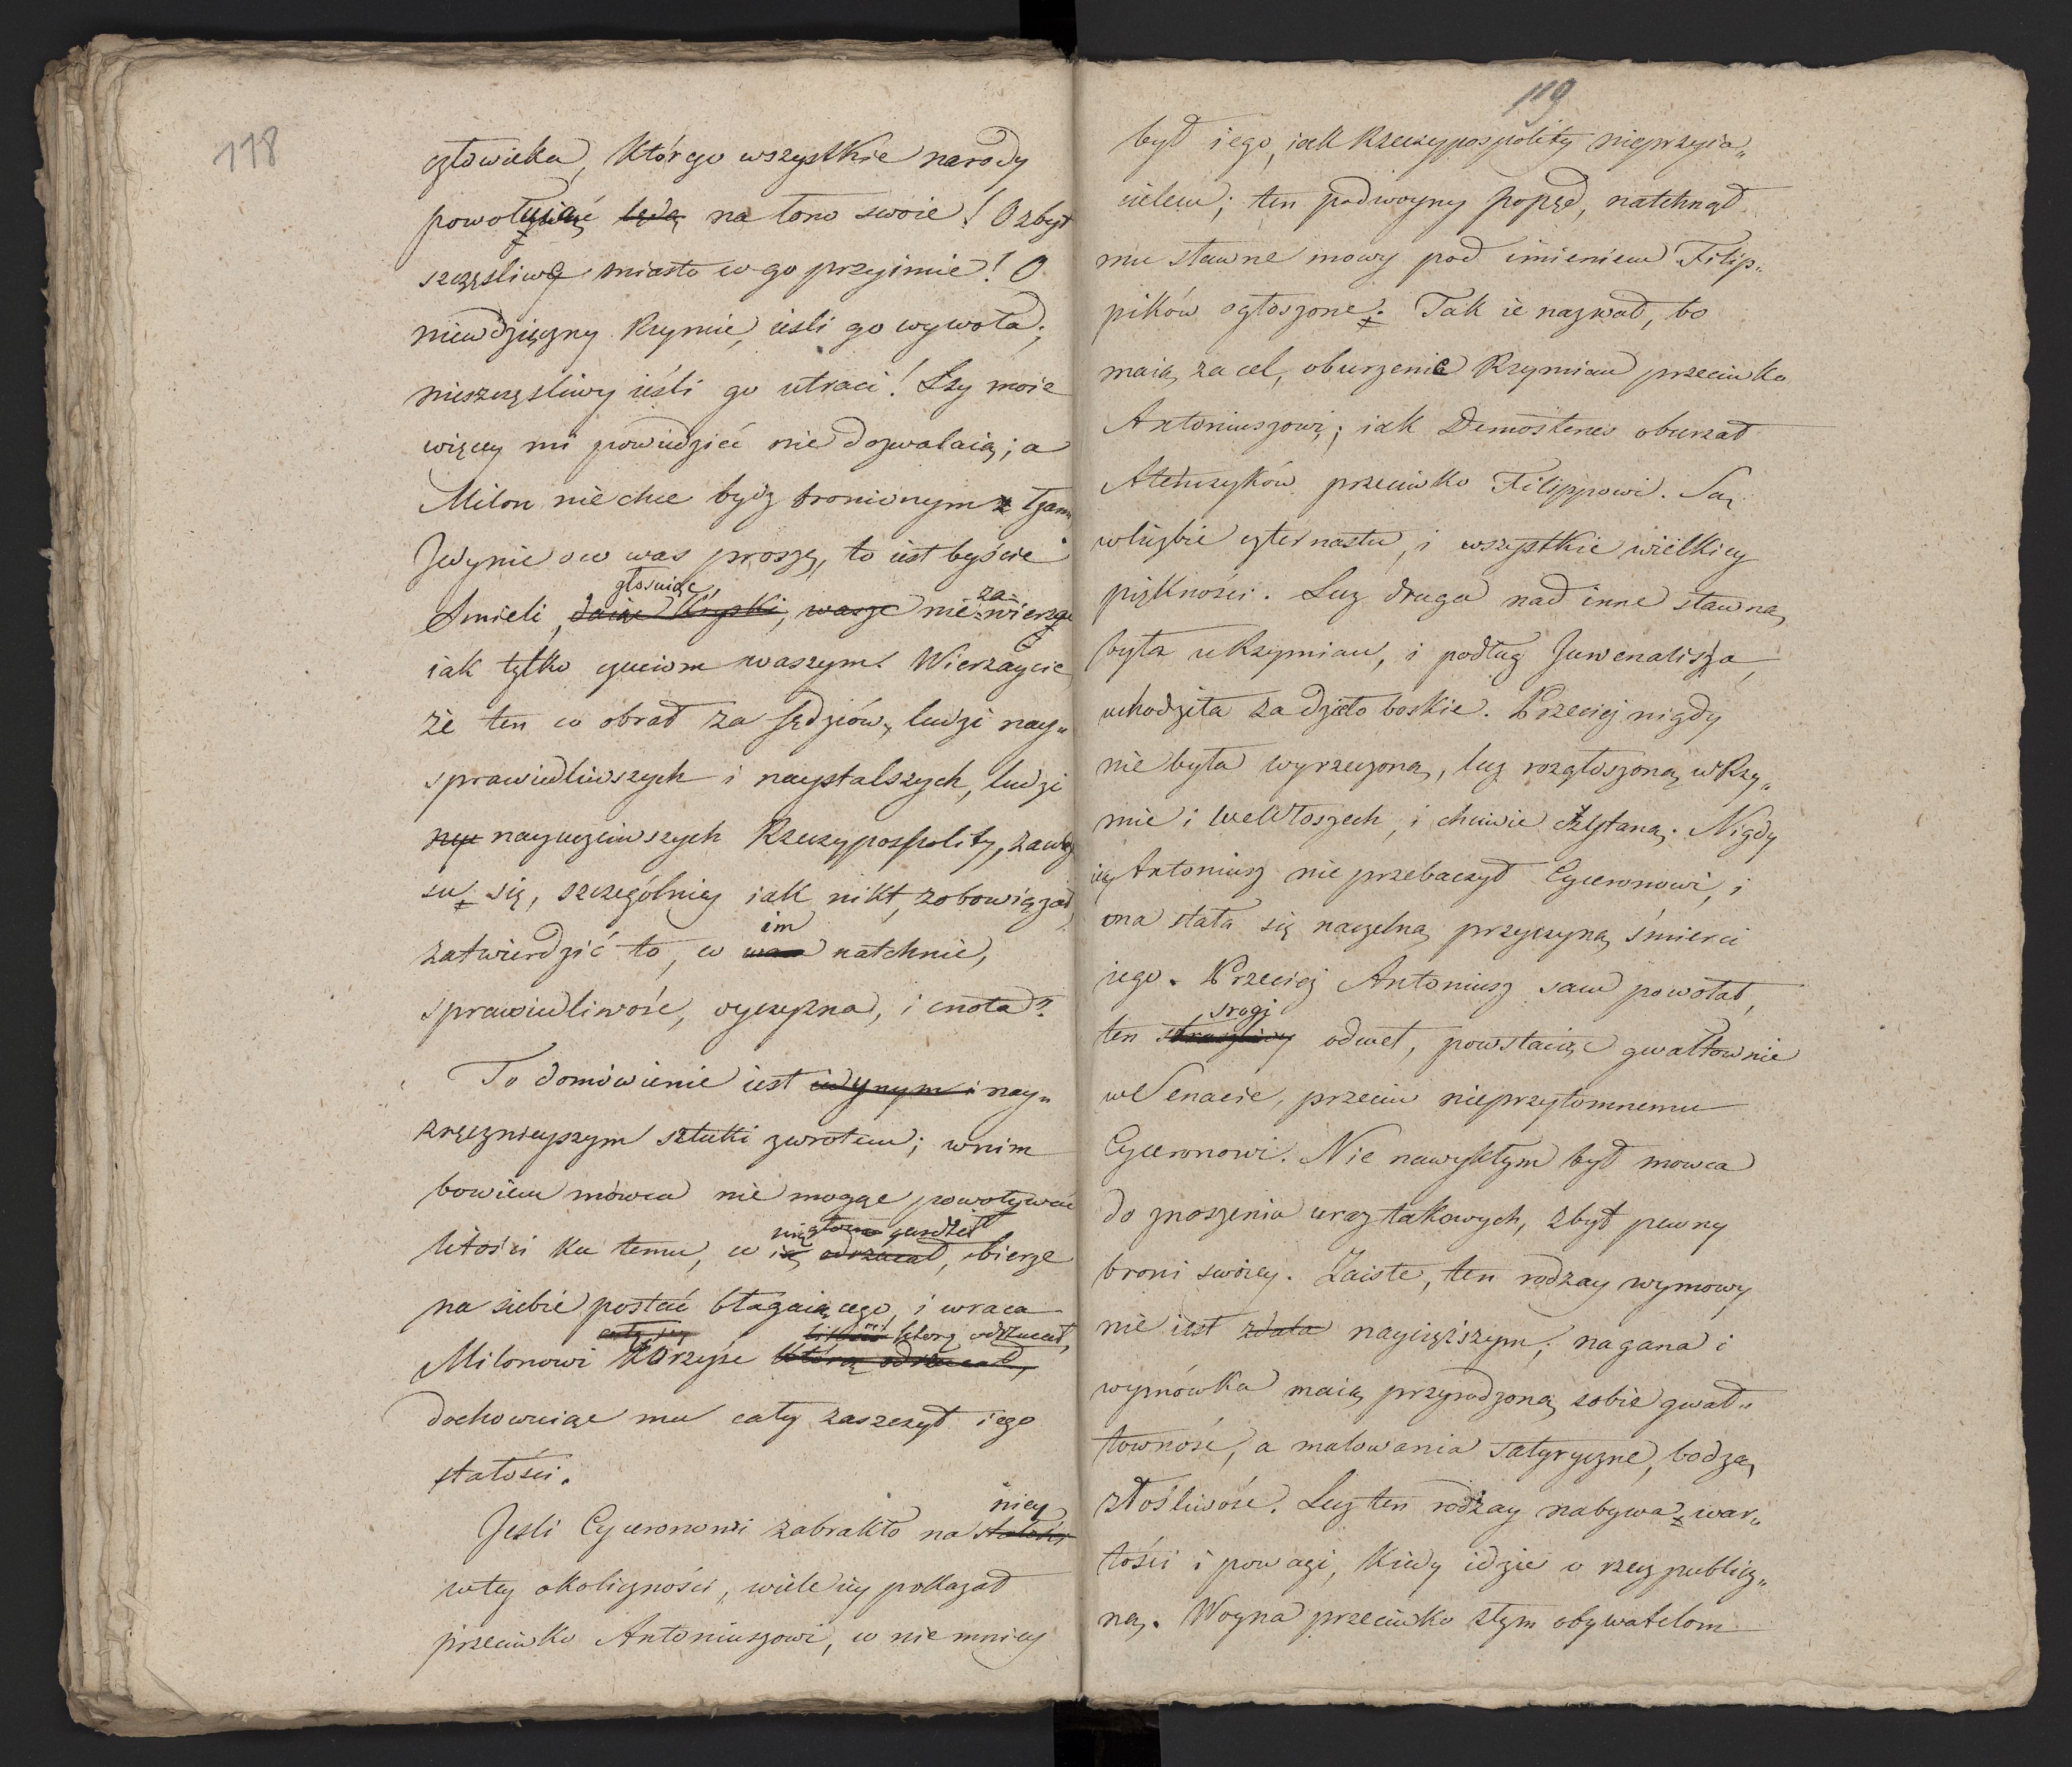 118
człowieka, którego wszystkie narody
powołuią na łono swoie! O zbyt
szczęsliwe miasto co go przyimie! O
niewdzięczny Rzymie, iesli go wywoła;
nieszczęsliwy iesli go utraci! Łzy moie
więcey mi powiedzieć nie dozwalaią; a
Milon nie chce bydz bronionym łzami
Jedynie o co was proszę, to iest byście
głosuiąc, za-
Smieli, daiąc kryski, wasze nie wierząc
iak tylko czuciom waszym. Wierzaycie
że ten co obrał za sędziów, ludzi nay„
sprawiedliwszych i naystalszych, ludzi
nay nayuczciwszych Rzeczypospolity,
su się, szczególniey iak nikt, zobowiązał,
im
zatwierdzić to, co wam natchnie,
sprawiedliwośc, oyczyzna, i cnota?
To domówienie iest iedynym i nay„
zręcznieyszym sztuki zwrotem; w nim
bowiem mówca nie mogąc powoływać
nią gardził
litości ku temu, co ią odrzucał, bierze
na siebie postać błagaiącego, i wraca
którą odrzucał,
Milonowi korzyśc którą odrzucał,
dochowuiąc mu cały zaszczyt iego
stałości.
niey
Jesli Cyceronowi zabrakło na stałości
w tey okoliczności, wiele iey pokazał
przeciwko Antoniuszowi, co nie mniey
119
był iego, iak Rzeczypospolity nieprzyia„
cielem; ten podwoyny popęd, natchnął
mu sławne mowy pod imieniem Filip„
pików ogłoszone. Tak ie nazwał, bo
maią za cel, oburzenie Rzymian przeciwko
Antoniuszowi; iak Demostenes oburzał
Atenczyków przeciwko Filippowi. Są
w liczbie czternastu, i wszystkie wielkiey
piękności. Lecz druga nad inne sławną
była u Rzymian, i podług Juwenalisza,
uchodziła za dzieło boskie. Przeciej nigdy
nie była wyrzeczoną, lecz rozgłoszoną w Rzy„
mie i we Włoszech, i chciwie czytaną. Nigdy
iey Antoniusz nie przebaczył Cyceronowi, i
ona stała się naczelną przyczyną śmierci
iego. Przeciej Antoniusz sam powołał,
srogi
ten straszliwy odwet, powstaiąc gwałtownie
w Senacie, przeciw nieprzytomnemu
Cyceronowi. Nie nawykłym był mowca
do znoszenia uraz takowych, zbyt pewny
broni swoiey. Zaiste, ten rodzay wymowy
nie iest zdala naycięższym; nagana i
wymówka maią przyrodzoną sobie gwał„
towność, a malowania satyryczne, bodzą
złośliwośc. Lecz ten rodzay nabywa war„
tości i powagi, kiedy idzie o rzecz publicz„
ną. Woyna przeciwko złym obywatelom